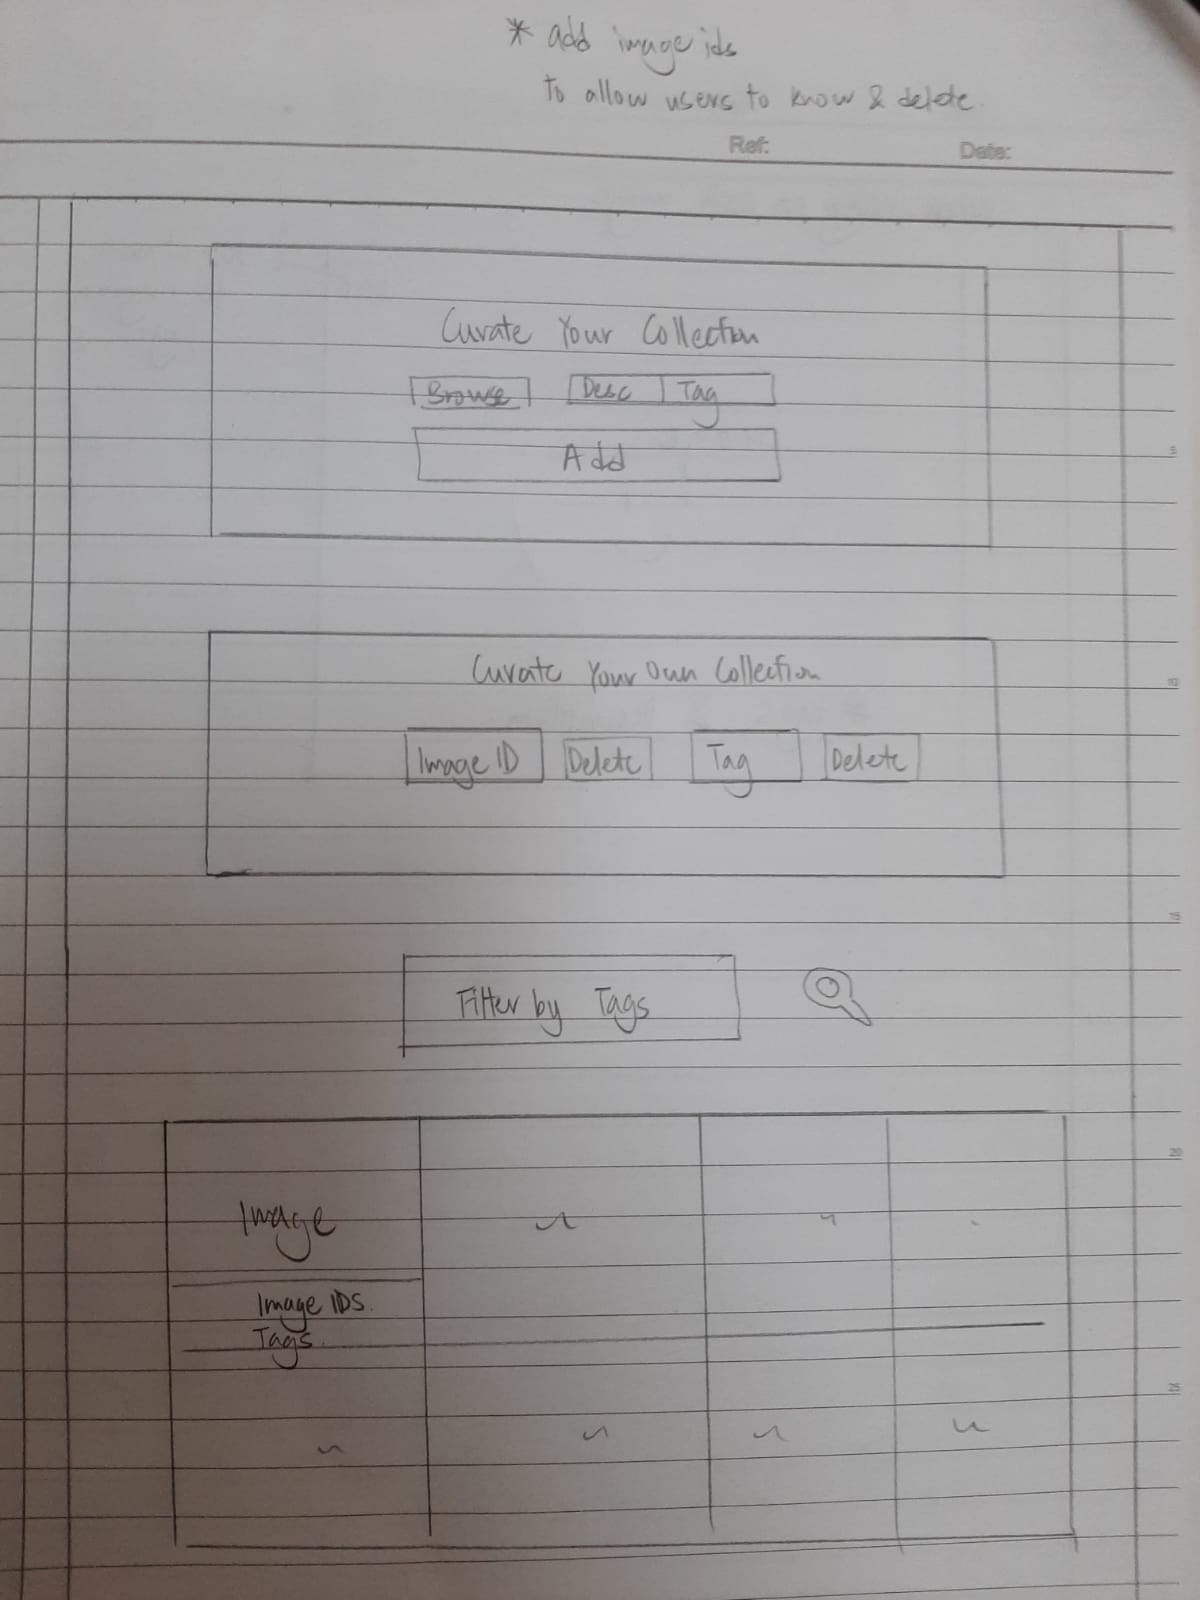 * add image ids
to allow users to know & delete.
Ref:
Date:
Curate Your Collection
Browse Desc Tag
Add
5
Curate Your Own Collection
10
Image ID Delete Tag Delete
15
Filter by Tags
20
Image
Image IDS.
Tags.
25